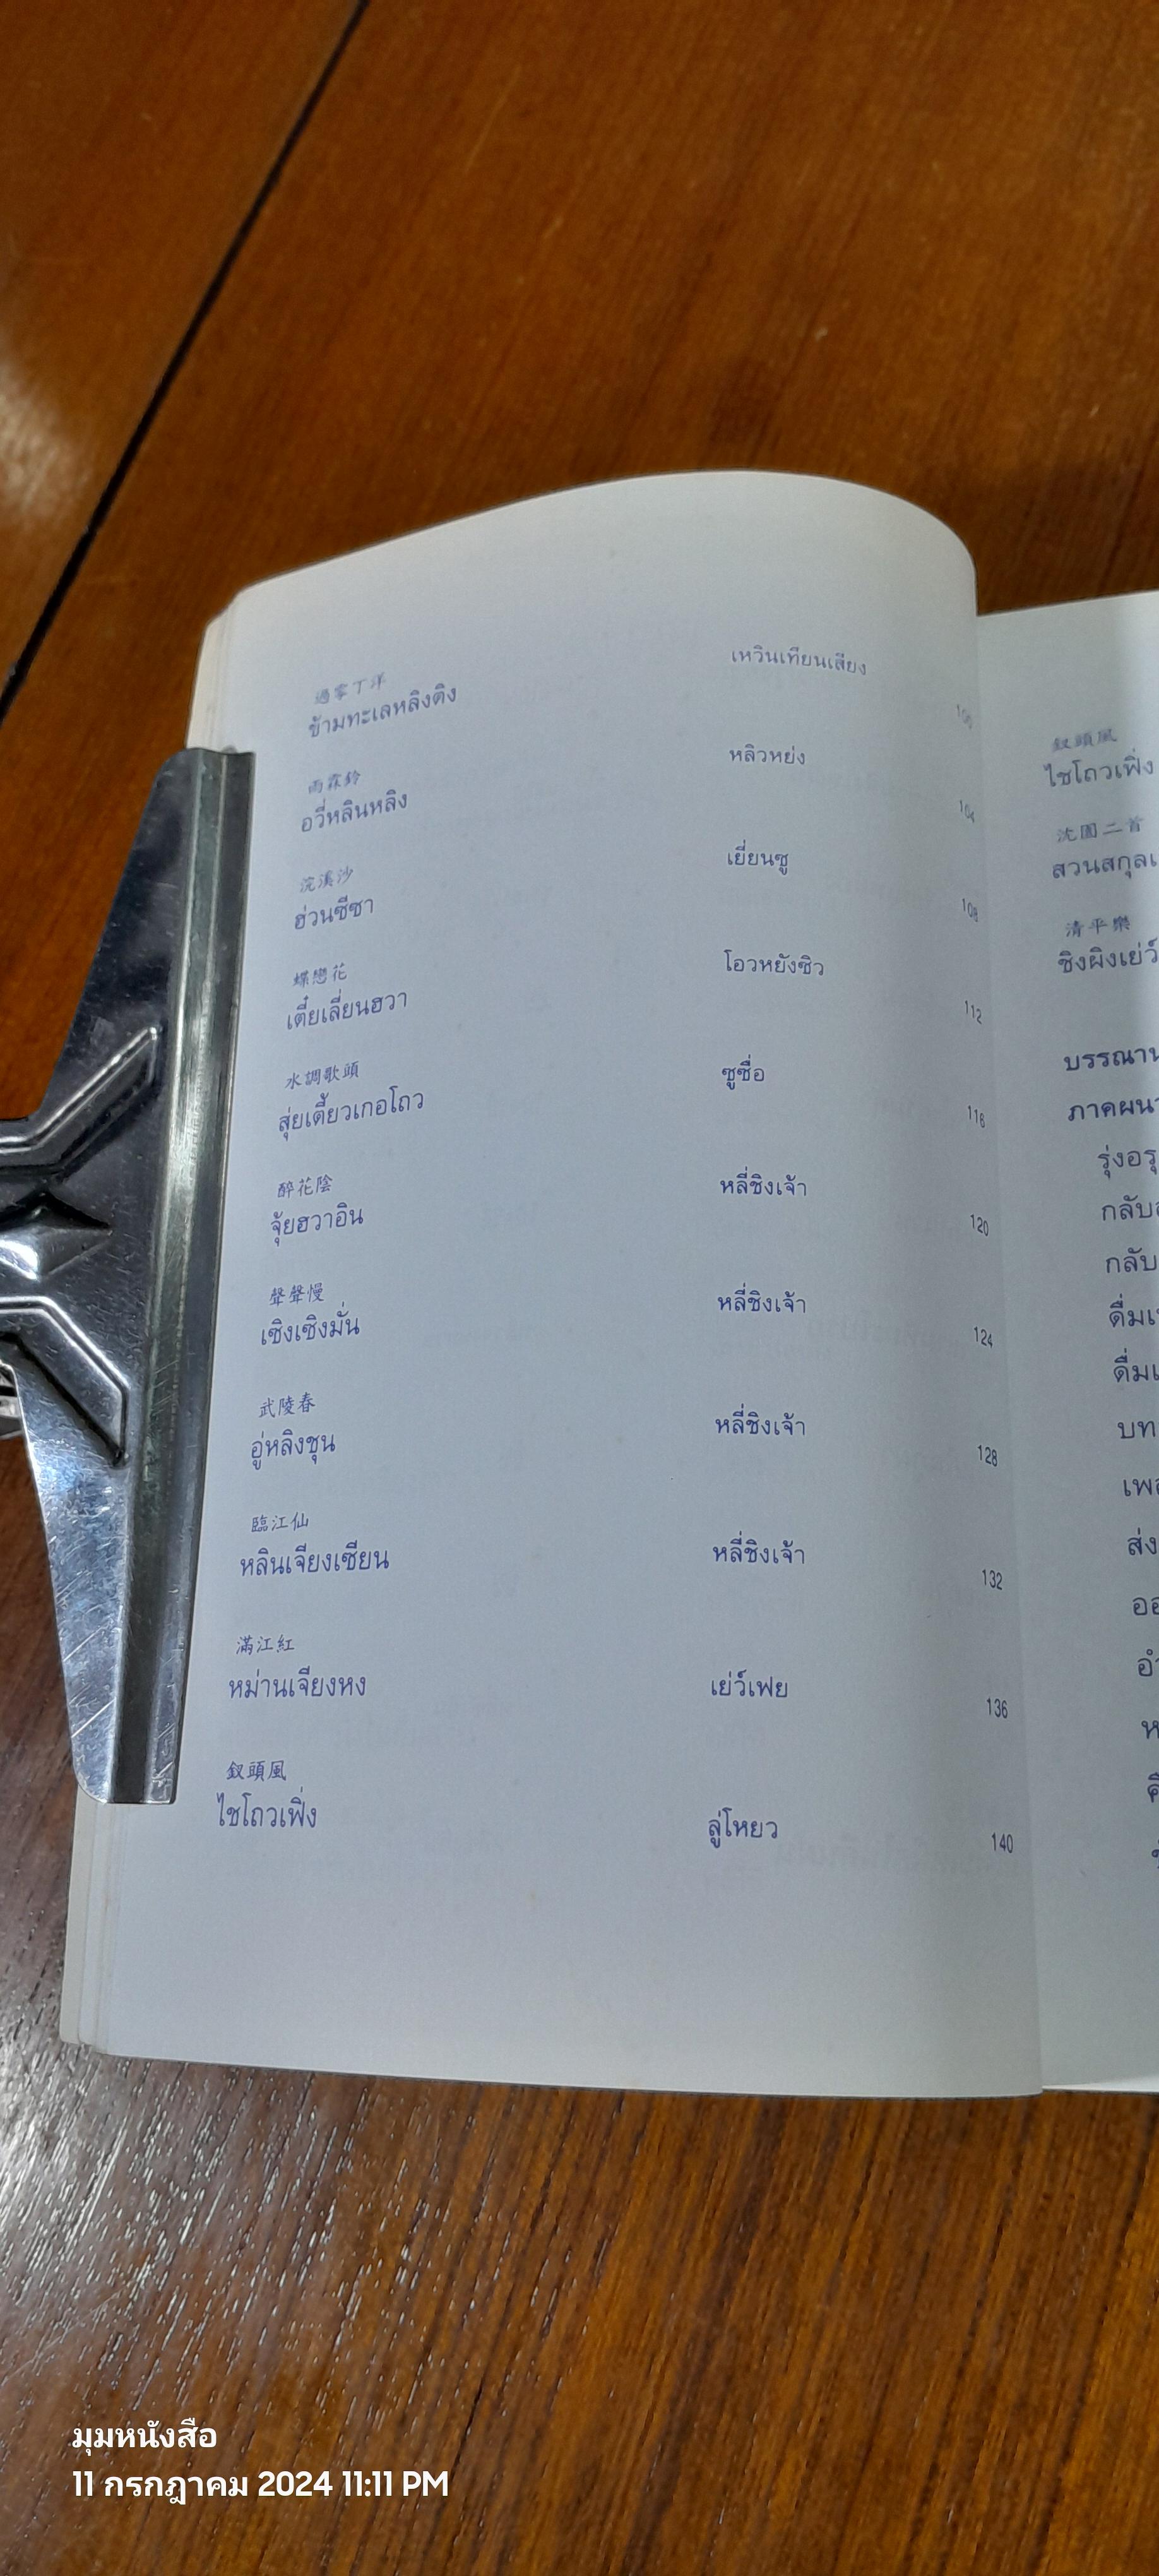 過零丁洋
ข้ามทะเลหลิงติง เหวินเทียนเสียง 100
雨霖鈴
อวี่หลินหลิง หลิวหย่ง 104
浣溪沙
ฮ่วนซีซา เยี่ยนซู 108
蝶戀花
เตี๋ยเลี่ยนฮวา โอวหยังซิว 112
水調歌頭
สุ่ยเตี้ยวเกอโถว ซูซื่อ 116
醉花陰
จุ้ยฮวาอิน หลี่ชิงเจ้า 120
聲聲慢
เซิงเซิงมั่น หลี่ชิงเจ้า 124
武陵春
อู่หลิงชุน หลี่ชิงเจ้า 128
臨江仙
หลินเจียงเซียน หลี่ชิงเจ้า 132
滿江紅
หม่านเจียงหง เย่ว์เฟย 136
釵頭風
ไชโถวเฟิ่ง ลู่โหยว 140
釵頭風
ไชโถวเฟิ่ง
沈園二首
สวนสกุล
清平樂
ชิงผิงเย่ว์
บรรณาน
ภาคผน
รุ่งอรุ
กลับ
กลับ
ดื่ม
ดื่ม
บท
เพล
ส่ง
มุมหนังสือ
11 กรกฎาคม 2024 11:11 PM